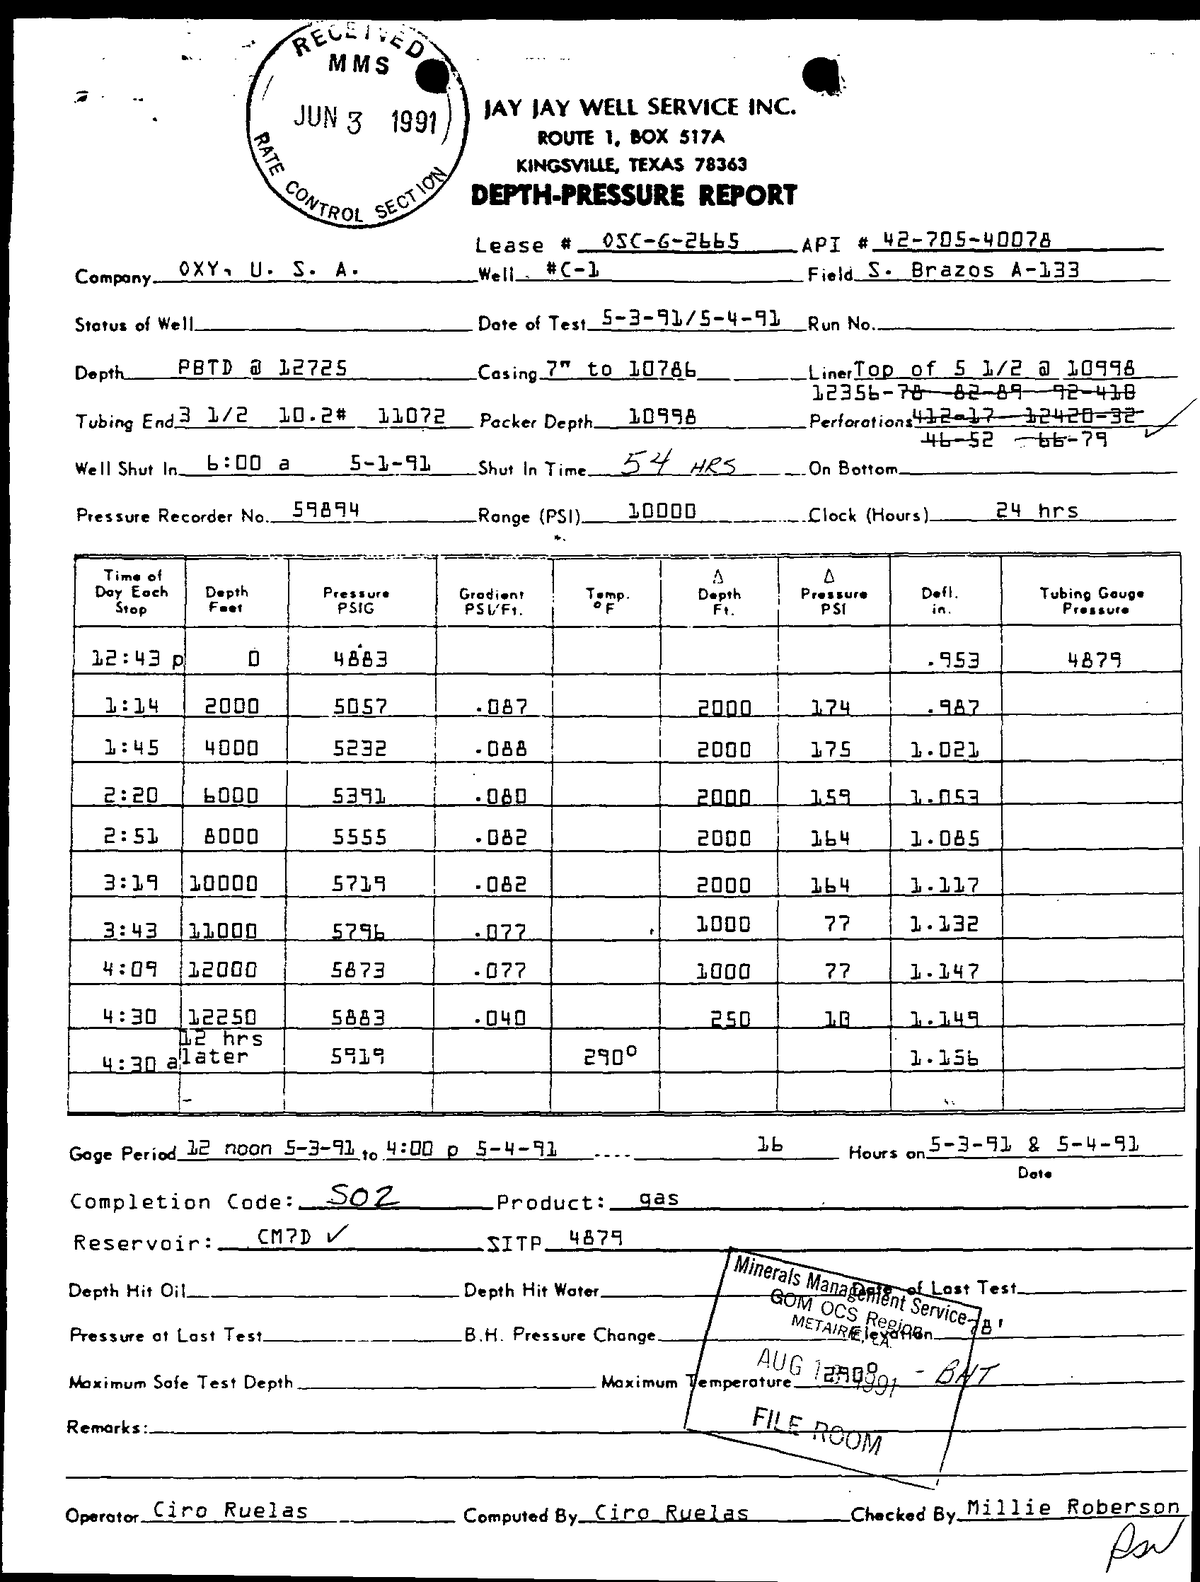 RECEIVED
MMS
JUN 3 1991
RATE CONTROL SECTION
JAY JAY WELL SERVICE INC.
ROUTE 1, BOX 517A
KINGSVILLE, TEXAS 78363
DEPTH-PRESSURE REPORT
Lease # OSC-G-2665 API # 42-705-40078
Company OXY, U. S. A. Well #C-1 Field S. Brazos A-133
Status of Well Date of Test 5-3-91/5-4-91 Run No.
Depth PBTD @ 12725 Casing 7" to 10786 Liner Top of 5 1/2 @ 10998
12356-78 82-89 92-410
Tubing End 3 1/2 10.2# 11072 Packer Depth 10998 Perforations 412-17 12420-32
46-52 66-79
Well Shut In 6:00 a 5-1-91 Shut In Time 54 HRS On Bottom
Pressure Recorder No. 59894 Range (PSI) 10000 Clock (Hours) 24 hrs
Time of Day Each Stop Depth Feet Pressure PSIG Gradient PSI/Ft. Temp. °F Δ Depth Ft. Δ Pressure PSI Defl. in. Tubing Gauge Pressure
12:43 p 0 4883 .953 4879
1:14 2000 5057 .087 2000 174 .987
1:45 4000 5232 .088 2000 175 1.021
2:20 6000 5391 .080 2000 159 1.053
2:51 8000 5555 .082 2000 164 1.085
3:19 10000 5719 .082 2000 164 1.117
3:43 11000 5796 .077 1000 77 1.132
4:09 12000 5873 .077 1000 77 1.147
4:30 12250 5883 .040 250 10 1.149
4:30 a 12 hrs later 5919 290° 1.156
Gage Period 12 noon 5-3-91 to 4:00 p 5-4-91 ---- 16 Hours on 5-3-91 & 5-4-91
Date
Completion Code: S02 Product: gas
Reservoir: CM7D ✓ SITP 4879
Depth Hit Oil Depth Hit Water Date of Last Test
Pressure at Last Test B.H. Pressure Change Elevation 78'
Maximum Safe Test Depth Maximum Temperature 290° - BHT
Minerals Management Service
GOM OCS Region
METAIRIE, LA.
AUG 1991
FILE ROOM
Remarks:
Operator Ciro Ruelas Computed By Ciro Ruelas Checked By Millie Roberson